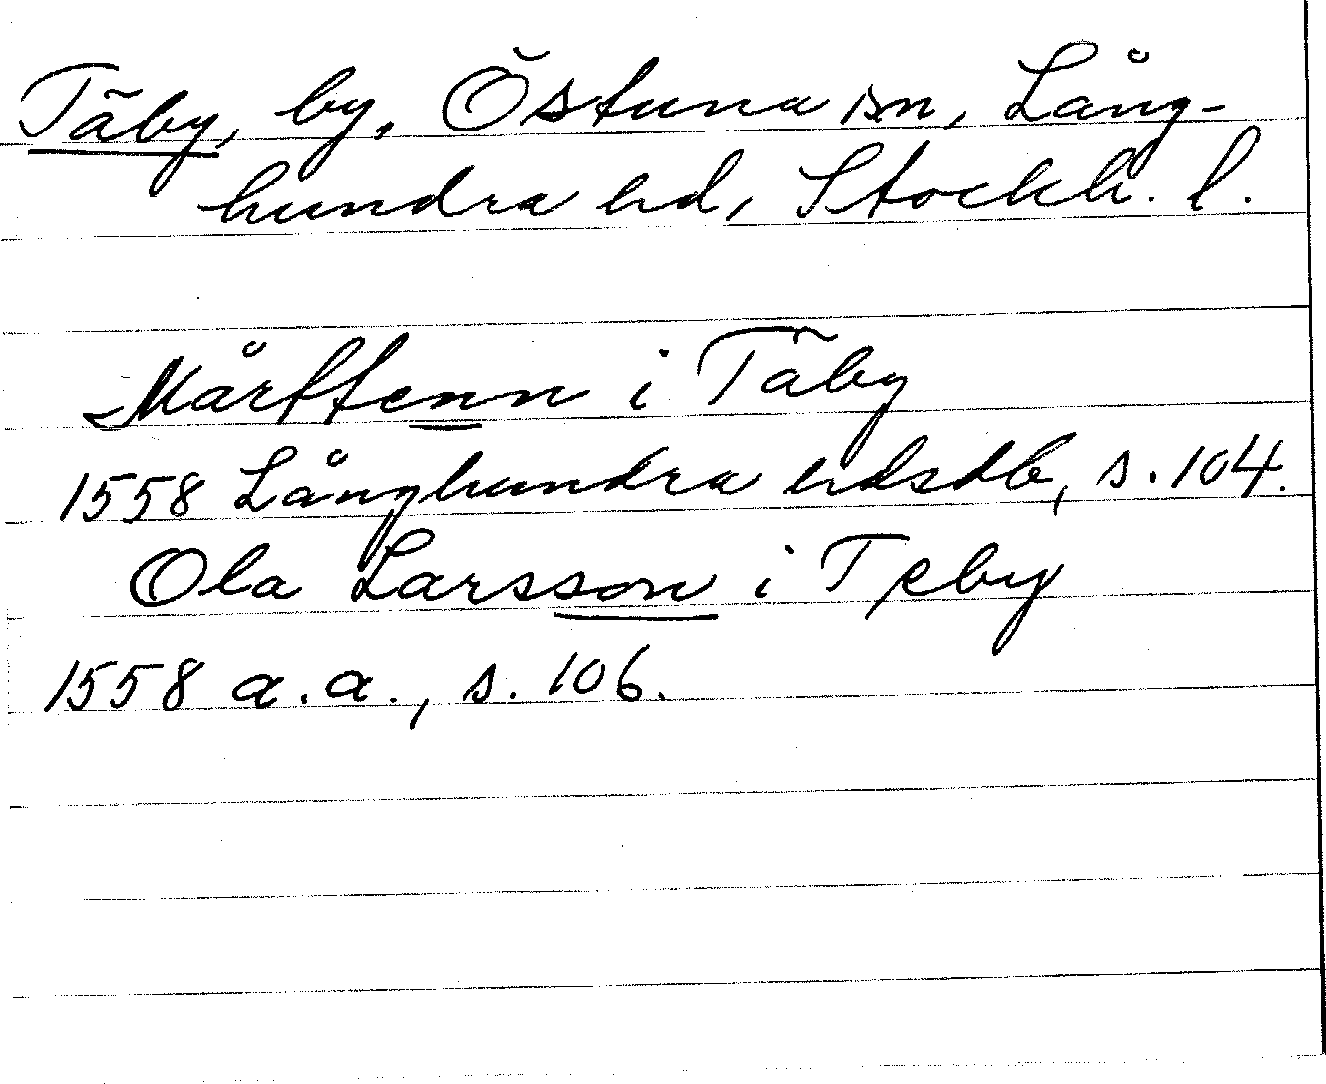 Täby, by, Östuna sn, Lång-
hundra hd, Stockh. l.
Mårttenn i Täby
1558 Långhundra hdsdb, s. 104.
Ola Larsson i Teby
1558 a.a., s. 106.